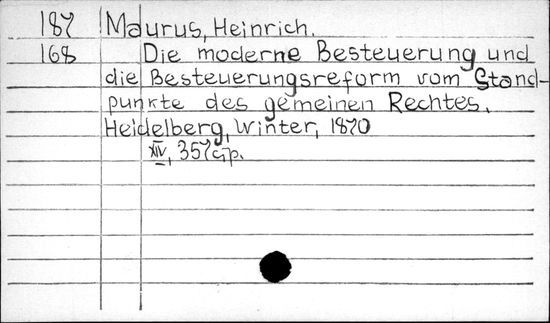 187 Maurus, Heinrich.
168 Die moderne Besteuerung und
die Besteuerungsreform vom Stand-
punkte des gemeinen Rechtes.
Heidelberg, Winter, 1870
XIV, 357 p.